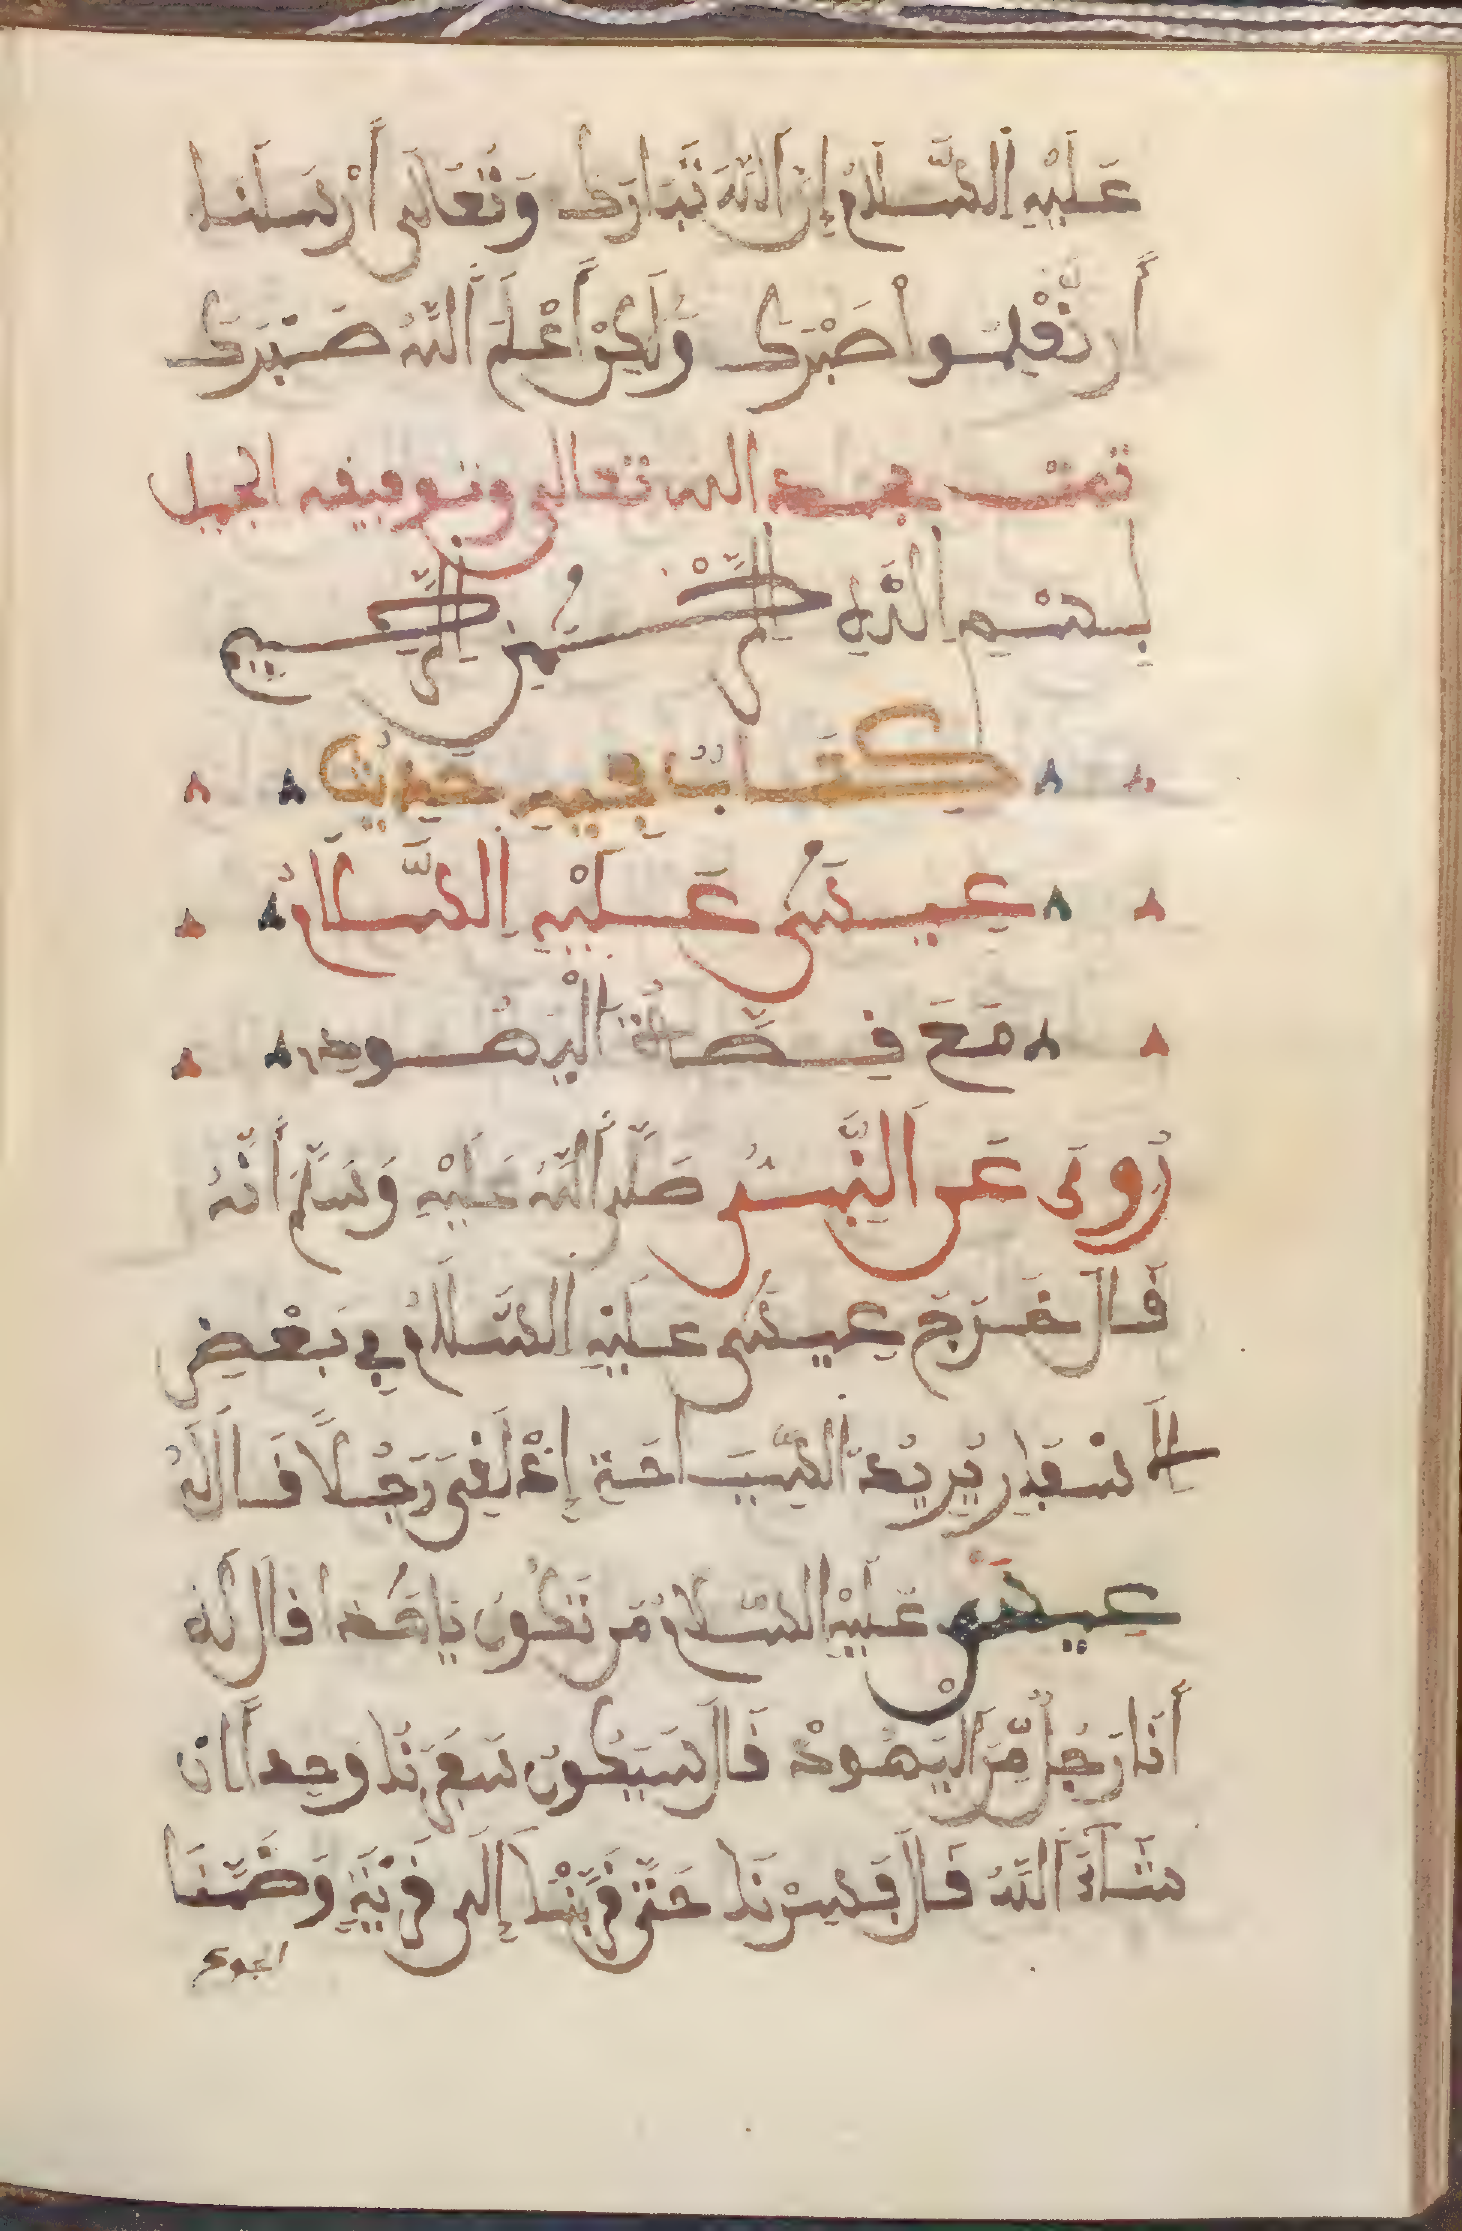 عَلَيْهِ السَّلَامُ إِنَّ اللَّهَ تَبَارَكَ وَتَعَالَى أَرْسَلَنَا
صَبْرَكَ وَلَكِنْ أَعْلَمَ اللَّهُ صَبْرَكَ
تمت بحمد الله تعالى وتوفيقه الجميل
بِسْمِ اللَّهِ الرَّحْمَٰنِ الرَّحِيمِ
كِتَابٌ فِيهِ حَدِيثُ
عِيسَى عَلَيْهِ السَّلَامُ
مَعَ قِصَّةِ الْيَهُودِي
رُوِيَ عَنِ النَّبِيِّ صَلَّى اللَّهُ عَلَيْهِ وَسَلَّمَ أَنَّهُ
قَالَ خَرَجَ عِيسَى عَلَيْهِ السَّلَامُ فِي بَعْضِ
الْأَسْفَارِ يُرِيدُ السِّيَاحَةَ إِذْ لَقِيَ رَجُلًا فَقَالَ لَهُ
عِيسَى عَلَيْهِ السَّلَامُ مَن تَكُونُ يَا هَذَا قَالَ لَهُ
أَنَا رَجُلٌ مِّنَ الْيَهُودْ قَالَ سَيَكُونُ سَفَرُنَا وَحِداً ان
شَاءَ اللَّهُ قَالَ فَسِرْنَا حَتَّى قَرَّبْنَا إِلَى قَرْيَةٍ وَضَّنَا
الجوع